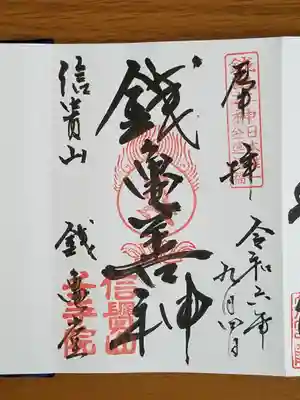 奉拝
令和六年九月四日
銭亀善神
信貴山 銭亀堂
信貴山
千手院